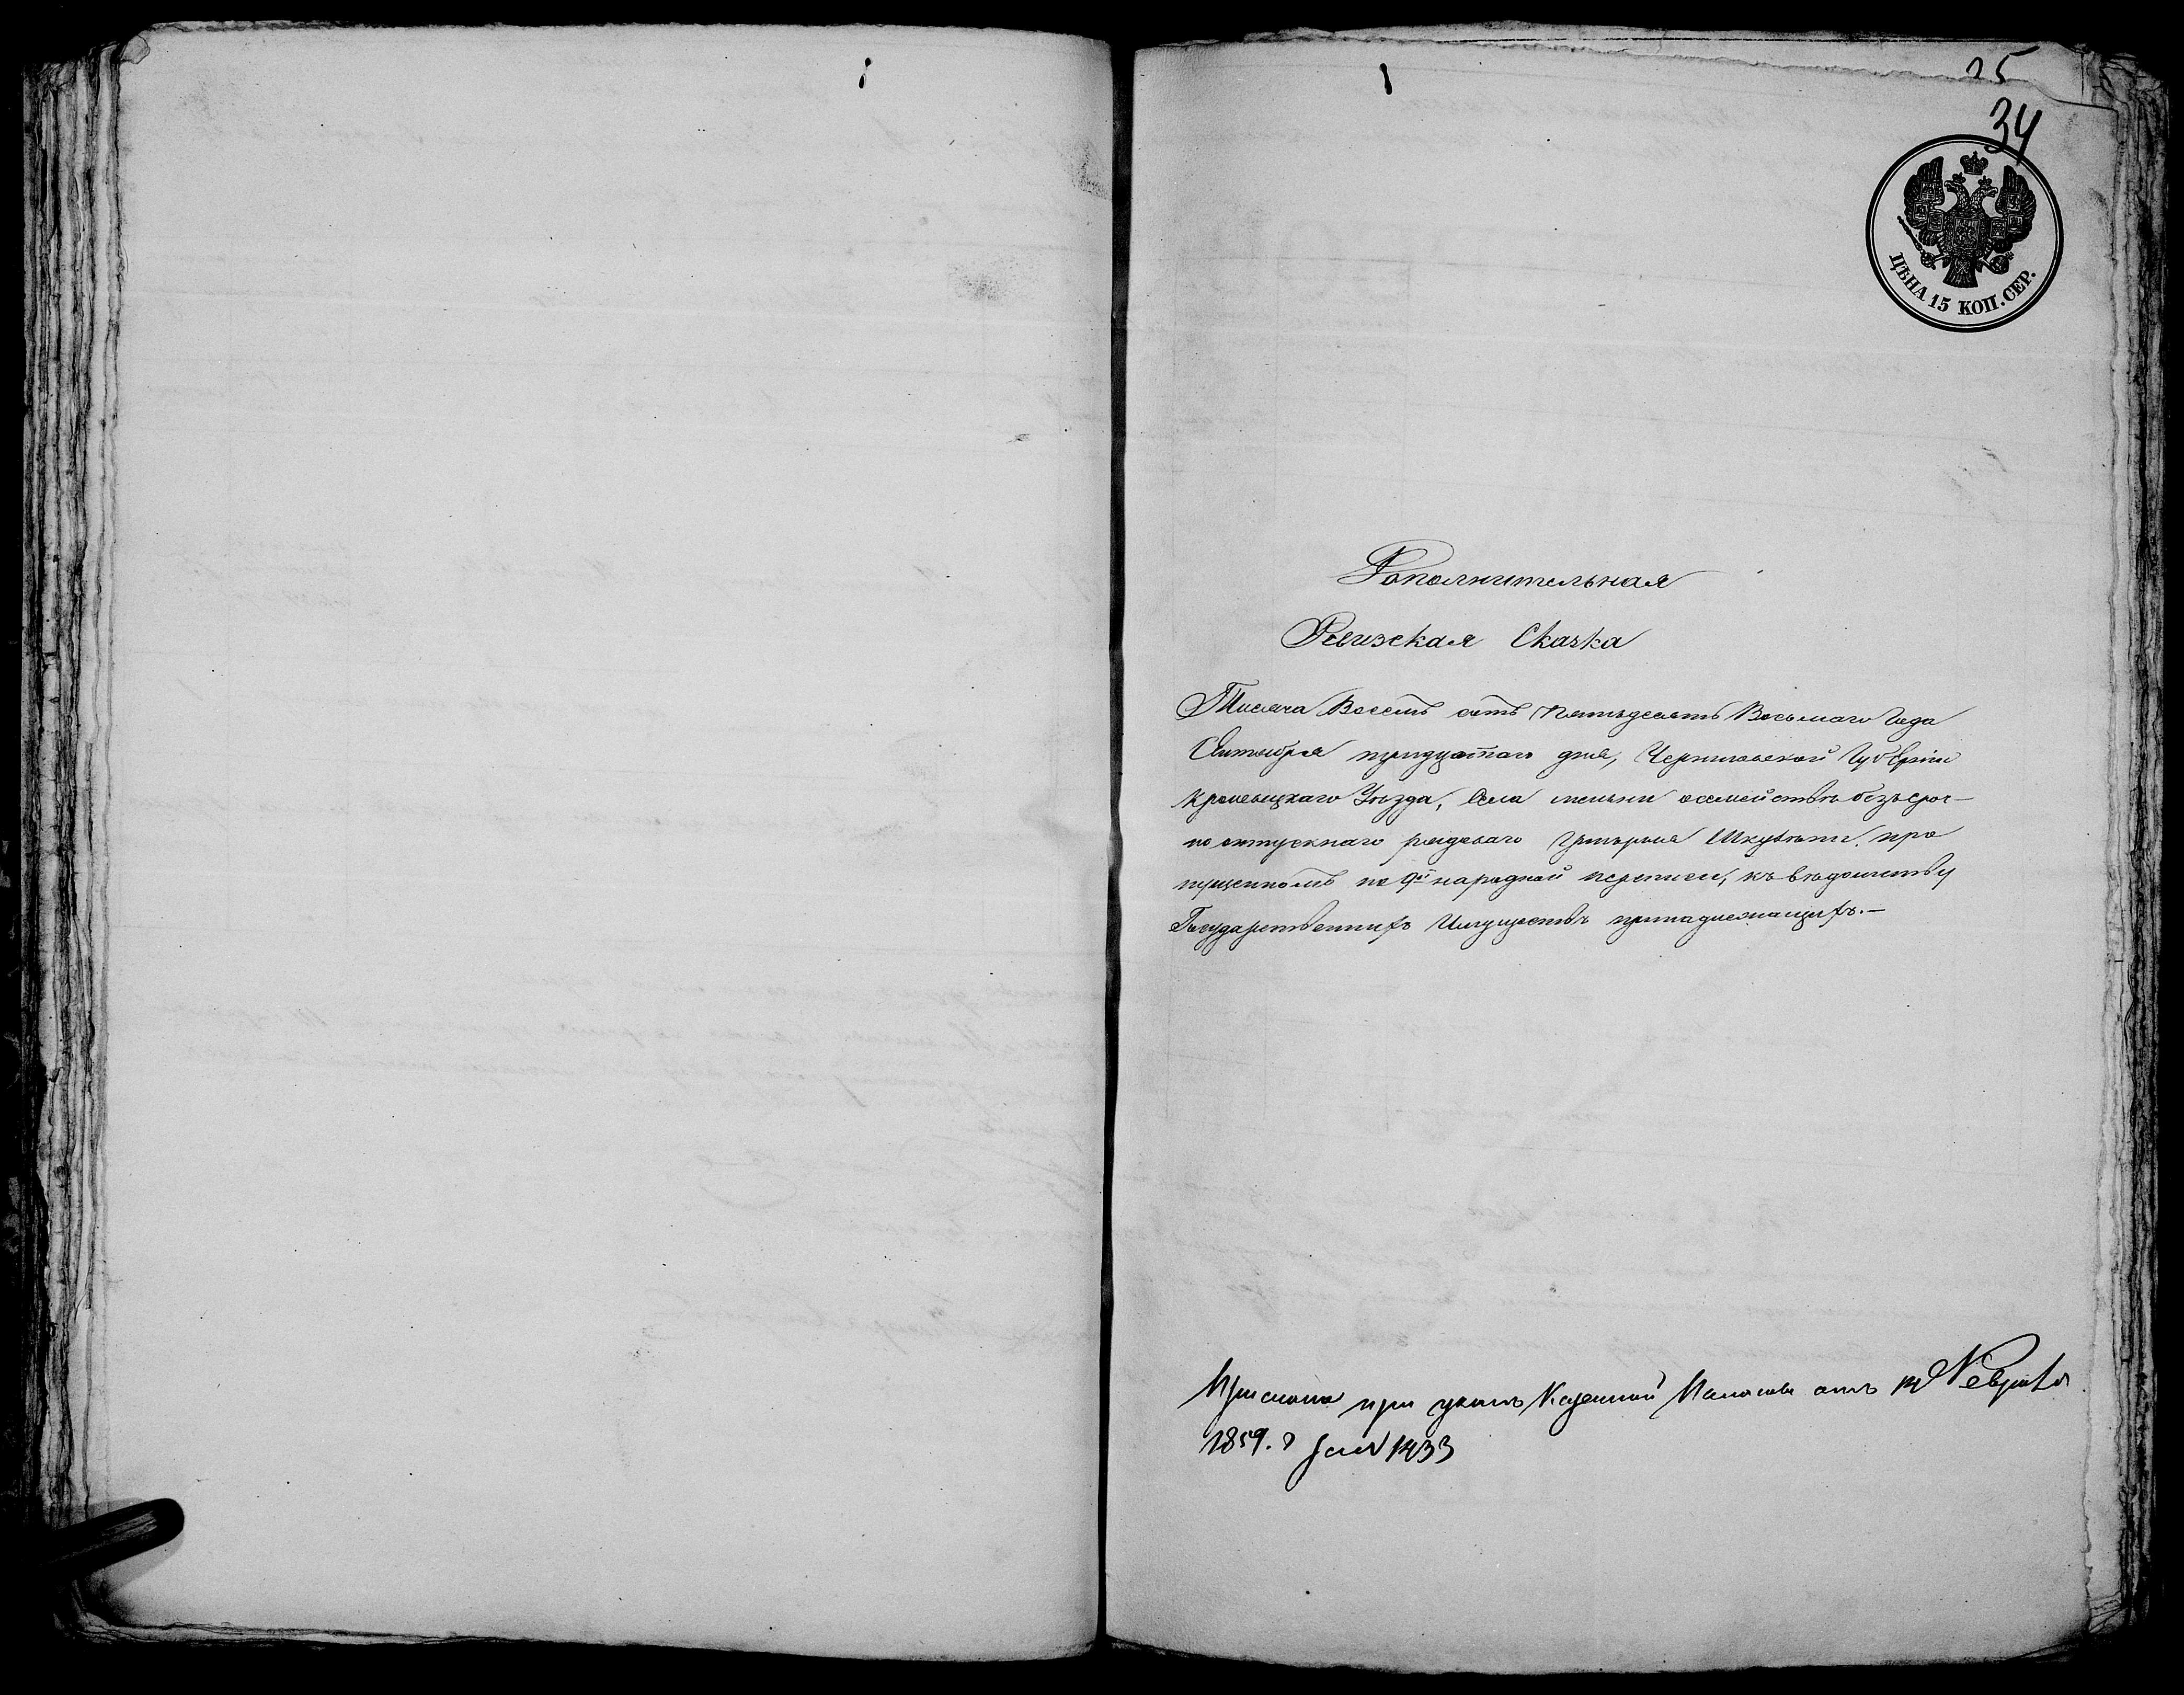 25
34
ЦѢНА 15 КОП. СЕР.
Дополнительная
Ревизская Сказка
Тисяча Восемь сотъ Пятьдесятъ Восьмаго Года
Октября тридцатаго дня, Черниговской Губерніи
Кролевецкаго Уѣзда, Села семействѣ безъсроч-
но отпускнаго рядоваго про
пущенномъ по 9й народной переписи, къ вѣдомству
Государственнихъ Имуществъ принадлежащихъ.—
Прислана при указѣ Казенной Палаты отъ Февраля
1859. г за N 1433